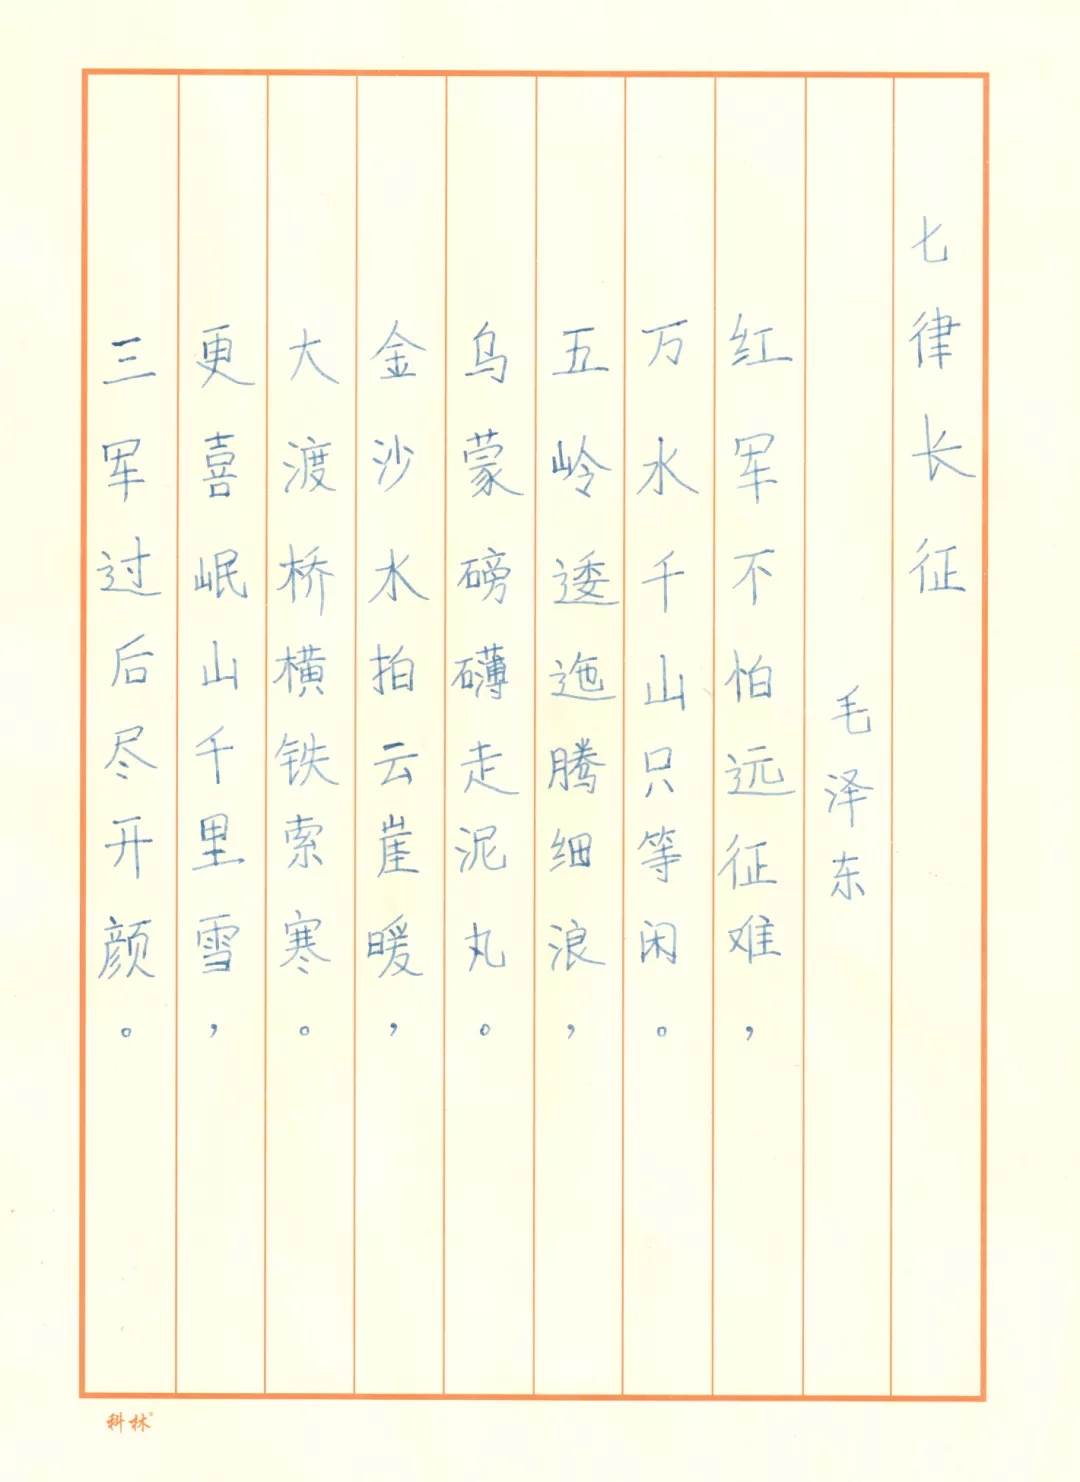 七律长征
毛泽东
红军不怕远征难，
万水千山只等闲。
五岭逶迤腾细浪，
乌蒙磅礴走泥丸。
金沙水拍云崖暖，
大渡桥横铁索寒。
更喜岷山千里雪，
三军过后尽开颜。
科林